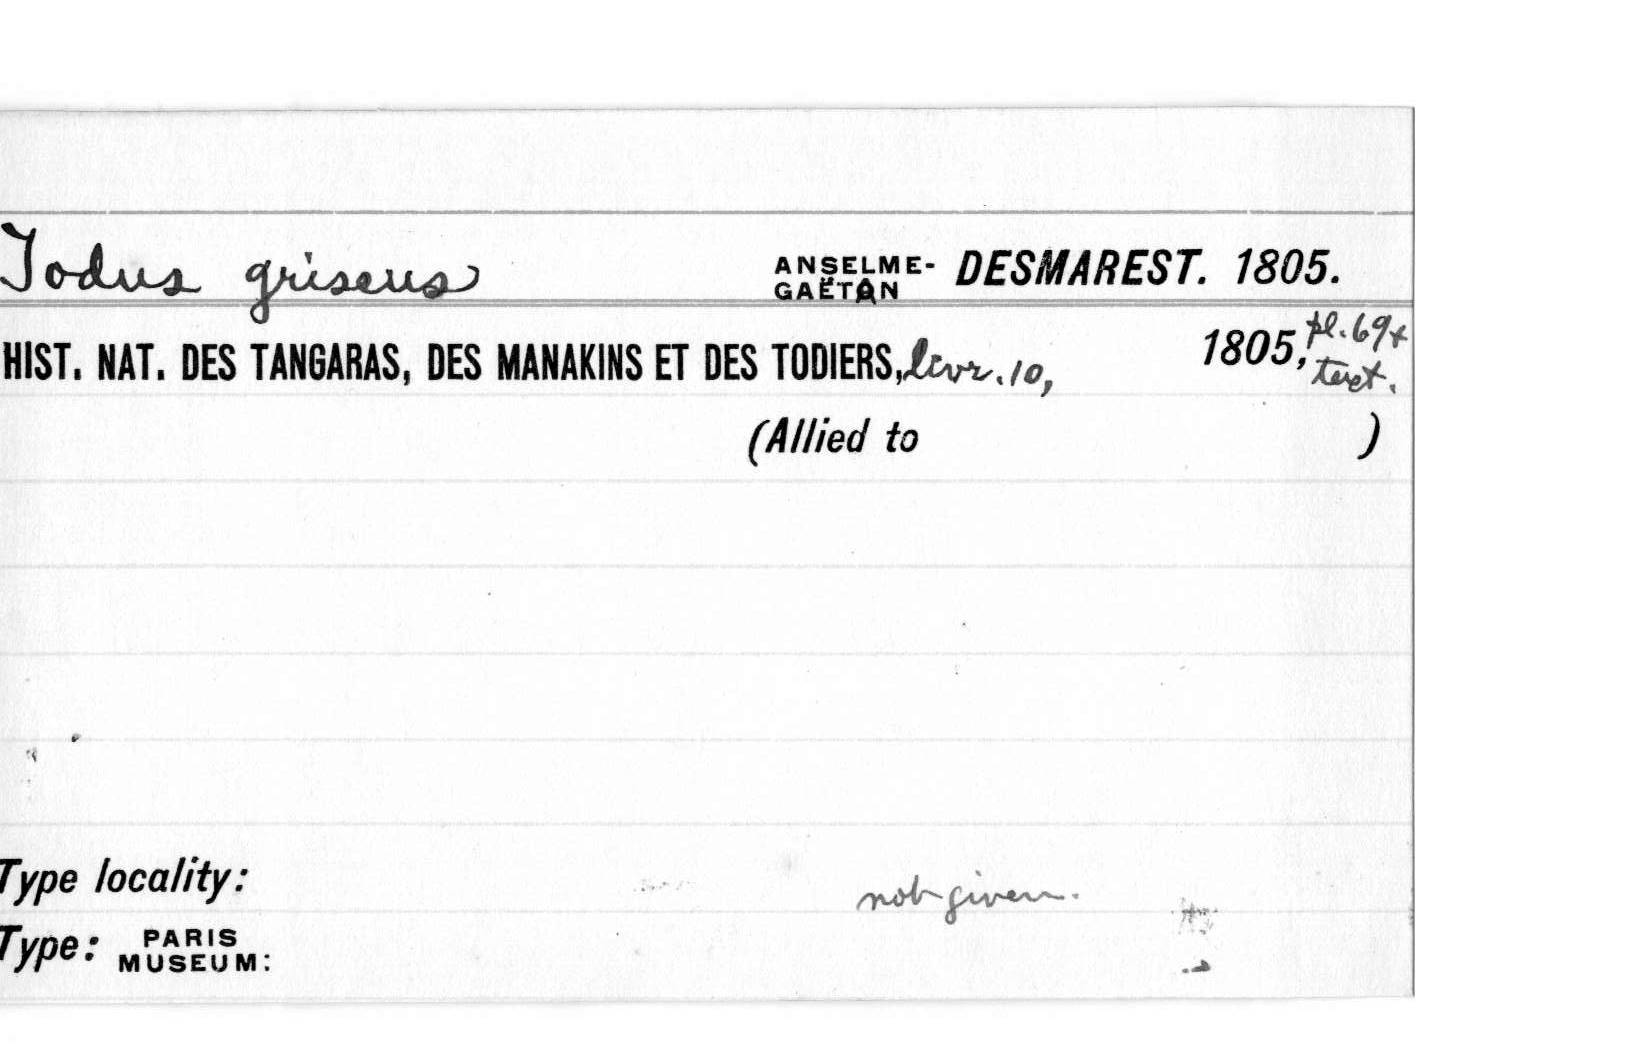 Todus griseus ANSELME-GAËTAN DESMAREST. 1805.
HIST. NAT. DES TANGARAS, DES MANAKINS ET DES TODIERS, livr. 10, 1805, pl. 69 + text.
(Allied to )
Type locality: not given.
Type: PARIS MUSEUM: